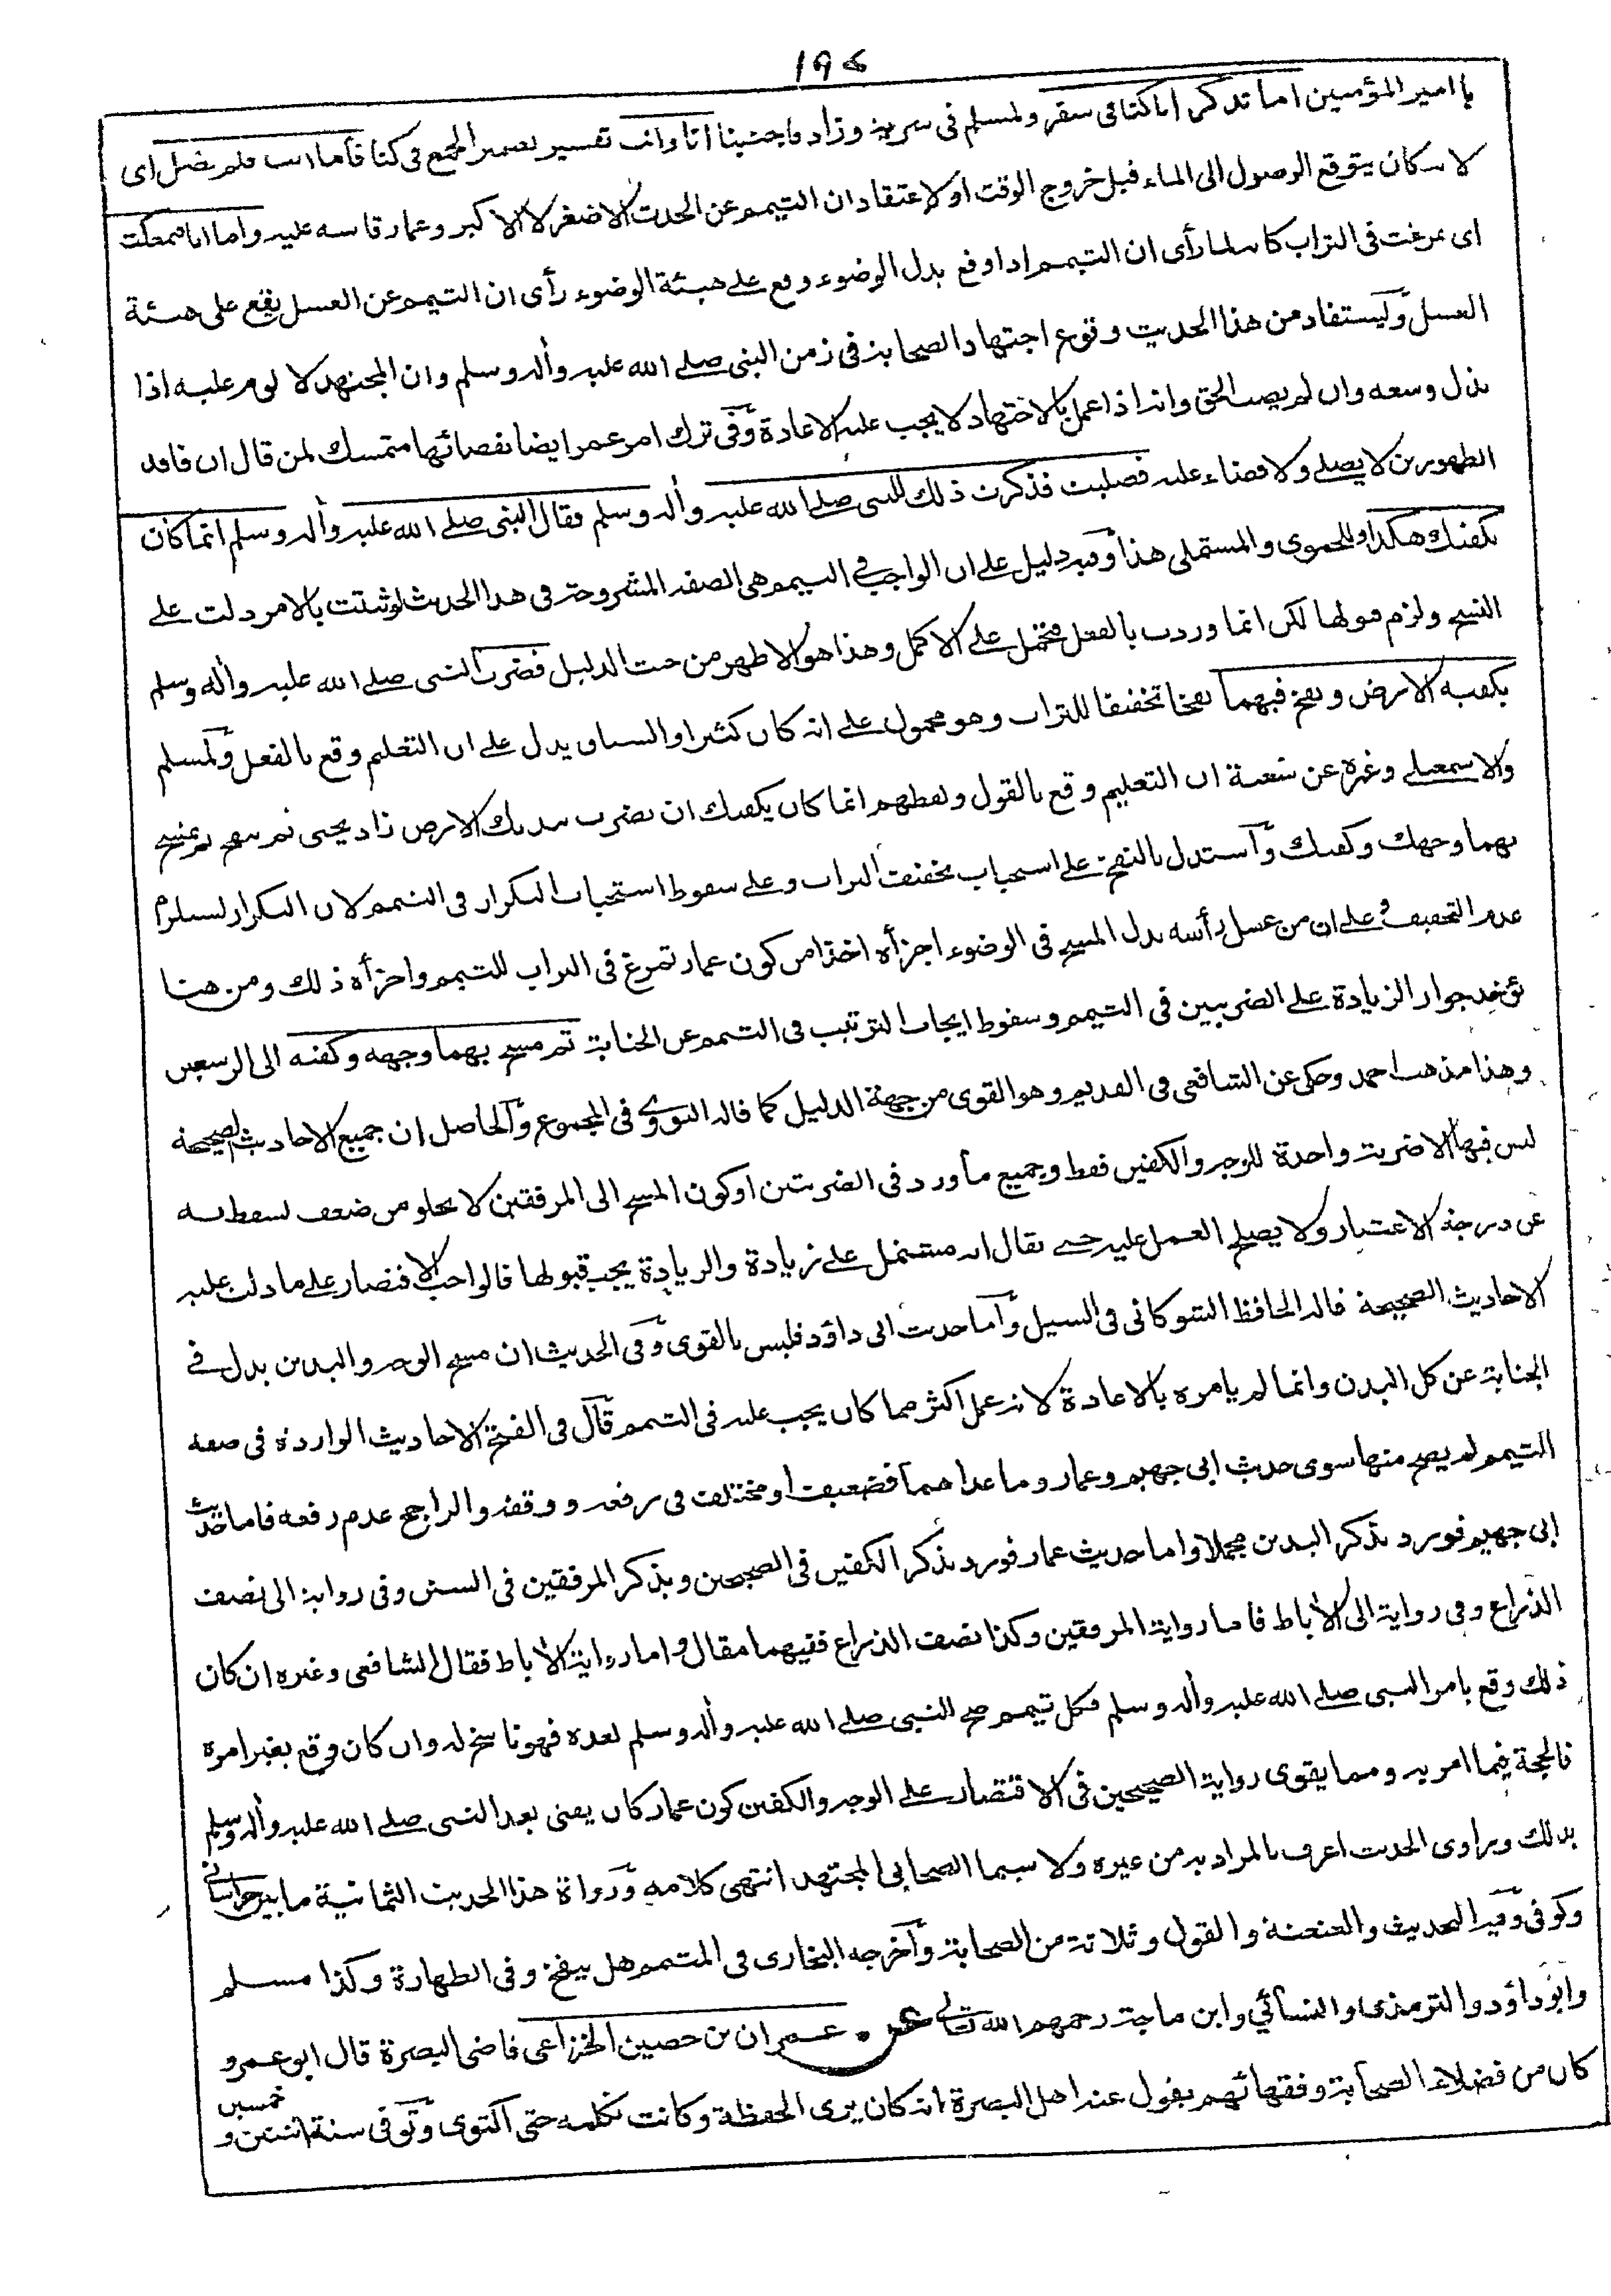 ١٩٤
يا امير المؤمنين اما تذكر انا كنا فى سفر ولمسلم فى سرية وزاد فاجنبنا انا وانت تفسير لضمير الجمع فى كنا فأما انت فلم تصل اى
لانه كان يتوقع الوصول الى الماء قبل خروج الوقت او لاعتقاد ان التيمم عن الحدث الاصغر لا الاكبر وعمار قاسه عليه واما انا فتمعكت
اى تمرغت فى التراب كانه لما رأى ان التيمم اذا وقع بدل الوضوء وقع على هيئة الوضوء رأى ان التيمم عن الغسل يقع على هيئة
الغسل ويستفاد من هذا الحديث وقوع اجتهاد الصحابة فى زمن النبى صلى الله عليه وأله وسلم وان المجتهد لا لوم عليه اذا
بذل وسعه وان لم يصب الحق وانه اذا عمل بالاجتهاد لا يجب عليه الاعادة وفى ترك امر عمر ايضا بقضائها متمسك لمن قال ان فاقد
الطهورين لا يصلى ولا قضاء عليه فصليت فذكرت ذلك للنبى صلى الله عليه وأله وسلم فقال النبى صلى الله عليه وأله وسلم انما كان
يكفيك هكذا وللحموى والمستملى هذا وفيه دليل على ان الواجب فى التيمم هى الصفة المشروحة فى هذا الحديث لو ثبتت بالامر دلت على
النسخ ولزم قبولها لكن انما وردت بالفعل فتحمل على الاكمل وهذا هو الاظهر من حيث الدليل فضرب النبى صلى الله عليه وأله وسلم
بكفيه الارض ونفخ فيهما نفخا تخفيفا للتراب وهو محمول على انه كان كثيرا والسياق يدل على ان التعليم وقع بالفعل ولمسلم
والاسمعيلى وغيره عن شعبة ان التعليم وقع بالقول ولفظهم انما كان يكفيك ان تضرب بيديك الارض زاد يحيى ثم تنفخ ثم تمسح
بهما وجهك وكفيك واستدل بالنفخ على استحباب تخفيف التراب وعلى سقوط استحباب التكرار فى التيمم لان التكرار يستلزم
عدم التخفيف وعلى ان من غسل رأسه بدل المسح فى الوضوء اجزأه اخذا من كون عمار تمرغ فى التراب للتيمم واجزأه ذلك ومن هنا
يؤخذ جواز الزيادة على الضربتين فى التيمم وسقوط ايجاب الترتيب فى التيمم عن الجنابة ثم مسح بهما وجهه وكفيه الى الرسغين
وهذا مذهب احمد وحكى عن الشافعى فى القديم وهو القوى من جهة الدليل كما قاله النووى فى المجموع والحاصل ان جميع الاحاديث الصحيحة
ليس فيها الا ضربة واحدة للوجه والكفين فقط وجميع ما ورد فى الضربتين او كون المسح الى المرفقين لا يخلو من ضعف يسقط به
عن درجة الاعتبار ولا يصلح العمل عليه حتى يقال انه مشتمل على زيادة والزيادة يجب قبولها فالواجب الاقتصار على ما دلت عليه
الاحاديث الصحيحة قاله الحافظ الشوكانى فى السيل وأما حديث ابى داؤد فليس بالقوى وفى الحديث ان مسح الوجه واليدين بدل فى
الجنابة عن كل البدن وانما لم يأمره بالاعادة لانه عمل اكثر مما كان يجب عليه فى التيمم قال فى الفتح الاحاديث الواردة فى صفة
التيمم لم يصح منها سوى حديث ابى جهيم وعمار وما عداهما فضعيف او مختلف فى رفعه ووقفه والراجح عدم رفعه فاما حديث
ابى جهيم فورد بذكر اليدين مجملا واما حديث عمار فورد بذكر الكفين فى الصحيحين وبذكر المرفقين فى السنن وفى رواية الى نصف
الذراع وفى رواية الى الأباط فاما رواية المرفقين وكذا نصف الذراع ففيهما مقال واما رواية الأباط فقال الشافعى وغيره ان كان
ذلك وقع بامر النبى صلى الله عليه وأله وسلم فكل تيمم صح للنبى صلى الله عليه وأله وسلم بعده فهو ناسخ له وان كان وقع بغير امره
فالحجة فيما امر به ومما يقوى رواية الصحيحين فى الاقتصار على الوجه والكفين كون عمار كان يفتى بعد النبى صلى الله عليه وأله وسلم
بذلك وراوى الحديث اعرف بالمراد به من غيره ولا سيما الصحابى المجتهد انتهى كلامه ورواة هذا الحديث الثمانية ما بين خراسانى
وكوفى وفيه التحديث والعنعنة والقول وثلاثة من الصحابة وأخرجه البخارى فى المتيمم هل ينفخ وفى الطهارة وكذا مسلم
وابو داؤد والترمذى والنسائي وابن ماجة رحمهم الله تعالى عن عمران بن حصين الخزاعى قاضى البصرة قال ابو عمرو
كان من فضلاء الصحابة وفقهائهم يقول عنه اهل البصرة انه كان يرى الحفظة وكانت تكلمه حتى اكتوى وتوفى سنة اثنتين و
خمسين